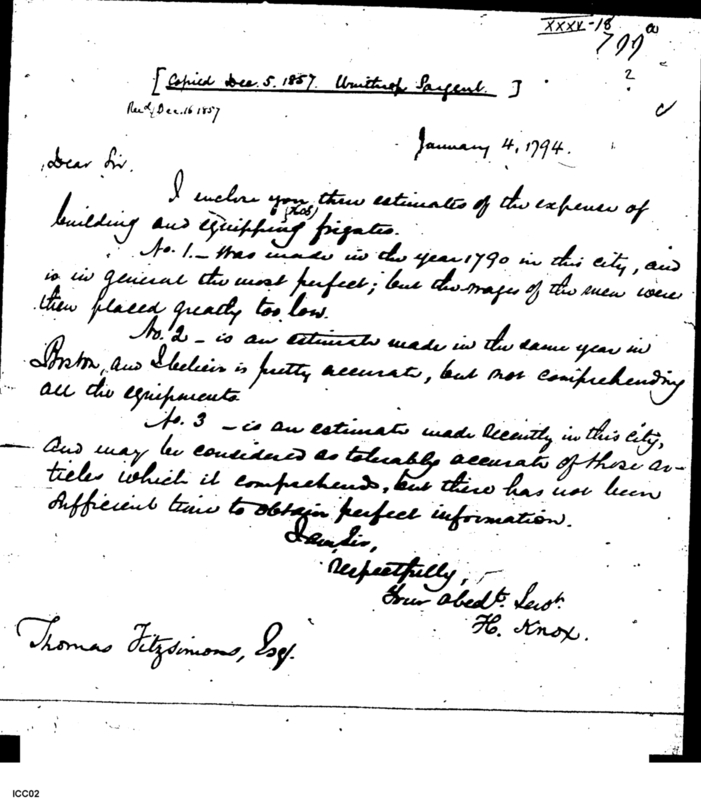 XXXV-18
799 a
2
[Copied Dec. 5. 1857. Winthrop Sargent.]
Recd. Dec. 16 1857
January 4, 1794.
Dear Sir.
I enclose you three estimates of the expense of
building and equipping frigates.
No. 1. – Was made in the year 1790 in this city, and
is in general the most perfect; but the wages of the men were
then placed greatly too low.
No. 2 – is an estimate made in the same year in
Boston, and I believe is pretty accurate, but not comprehending
all the equipments
No. 3 – is an estimate made recently in this city,
and may be considered as tolerably accurate of those ar-
ticles which it comprehends, but there has not been
sufficient time to obtain perfect information.
I am, Sir,
respectfully,
Your obedt. Servt.
H. Knox.
Thomas Fitzsimons, Esq.
ICC02